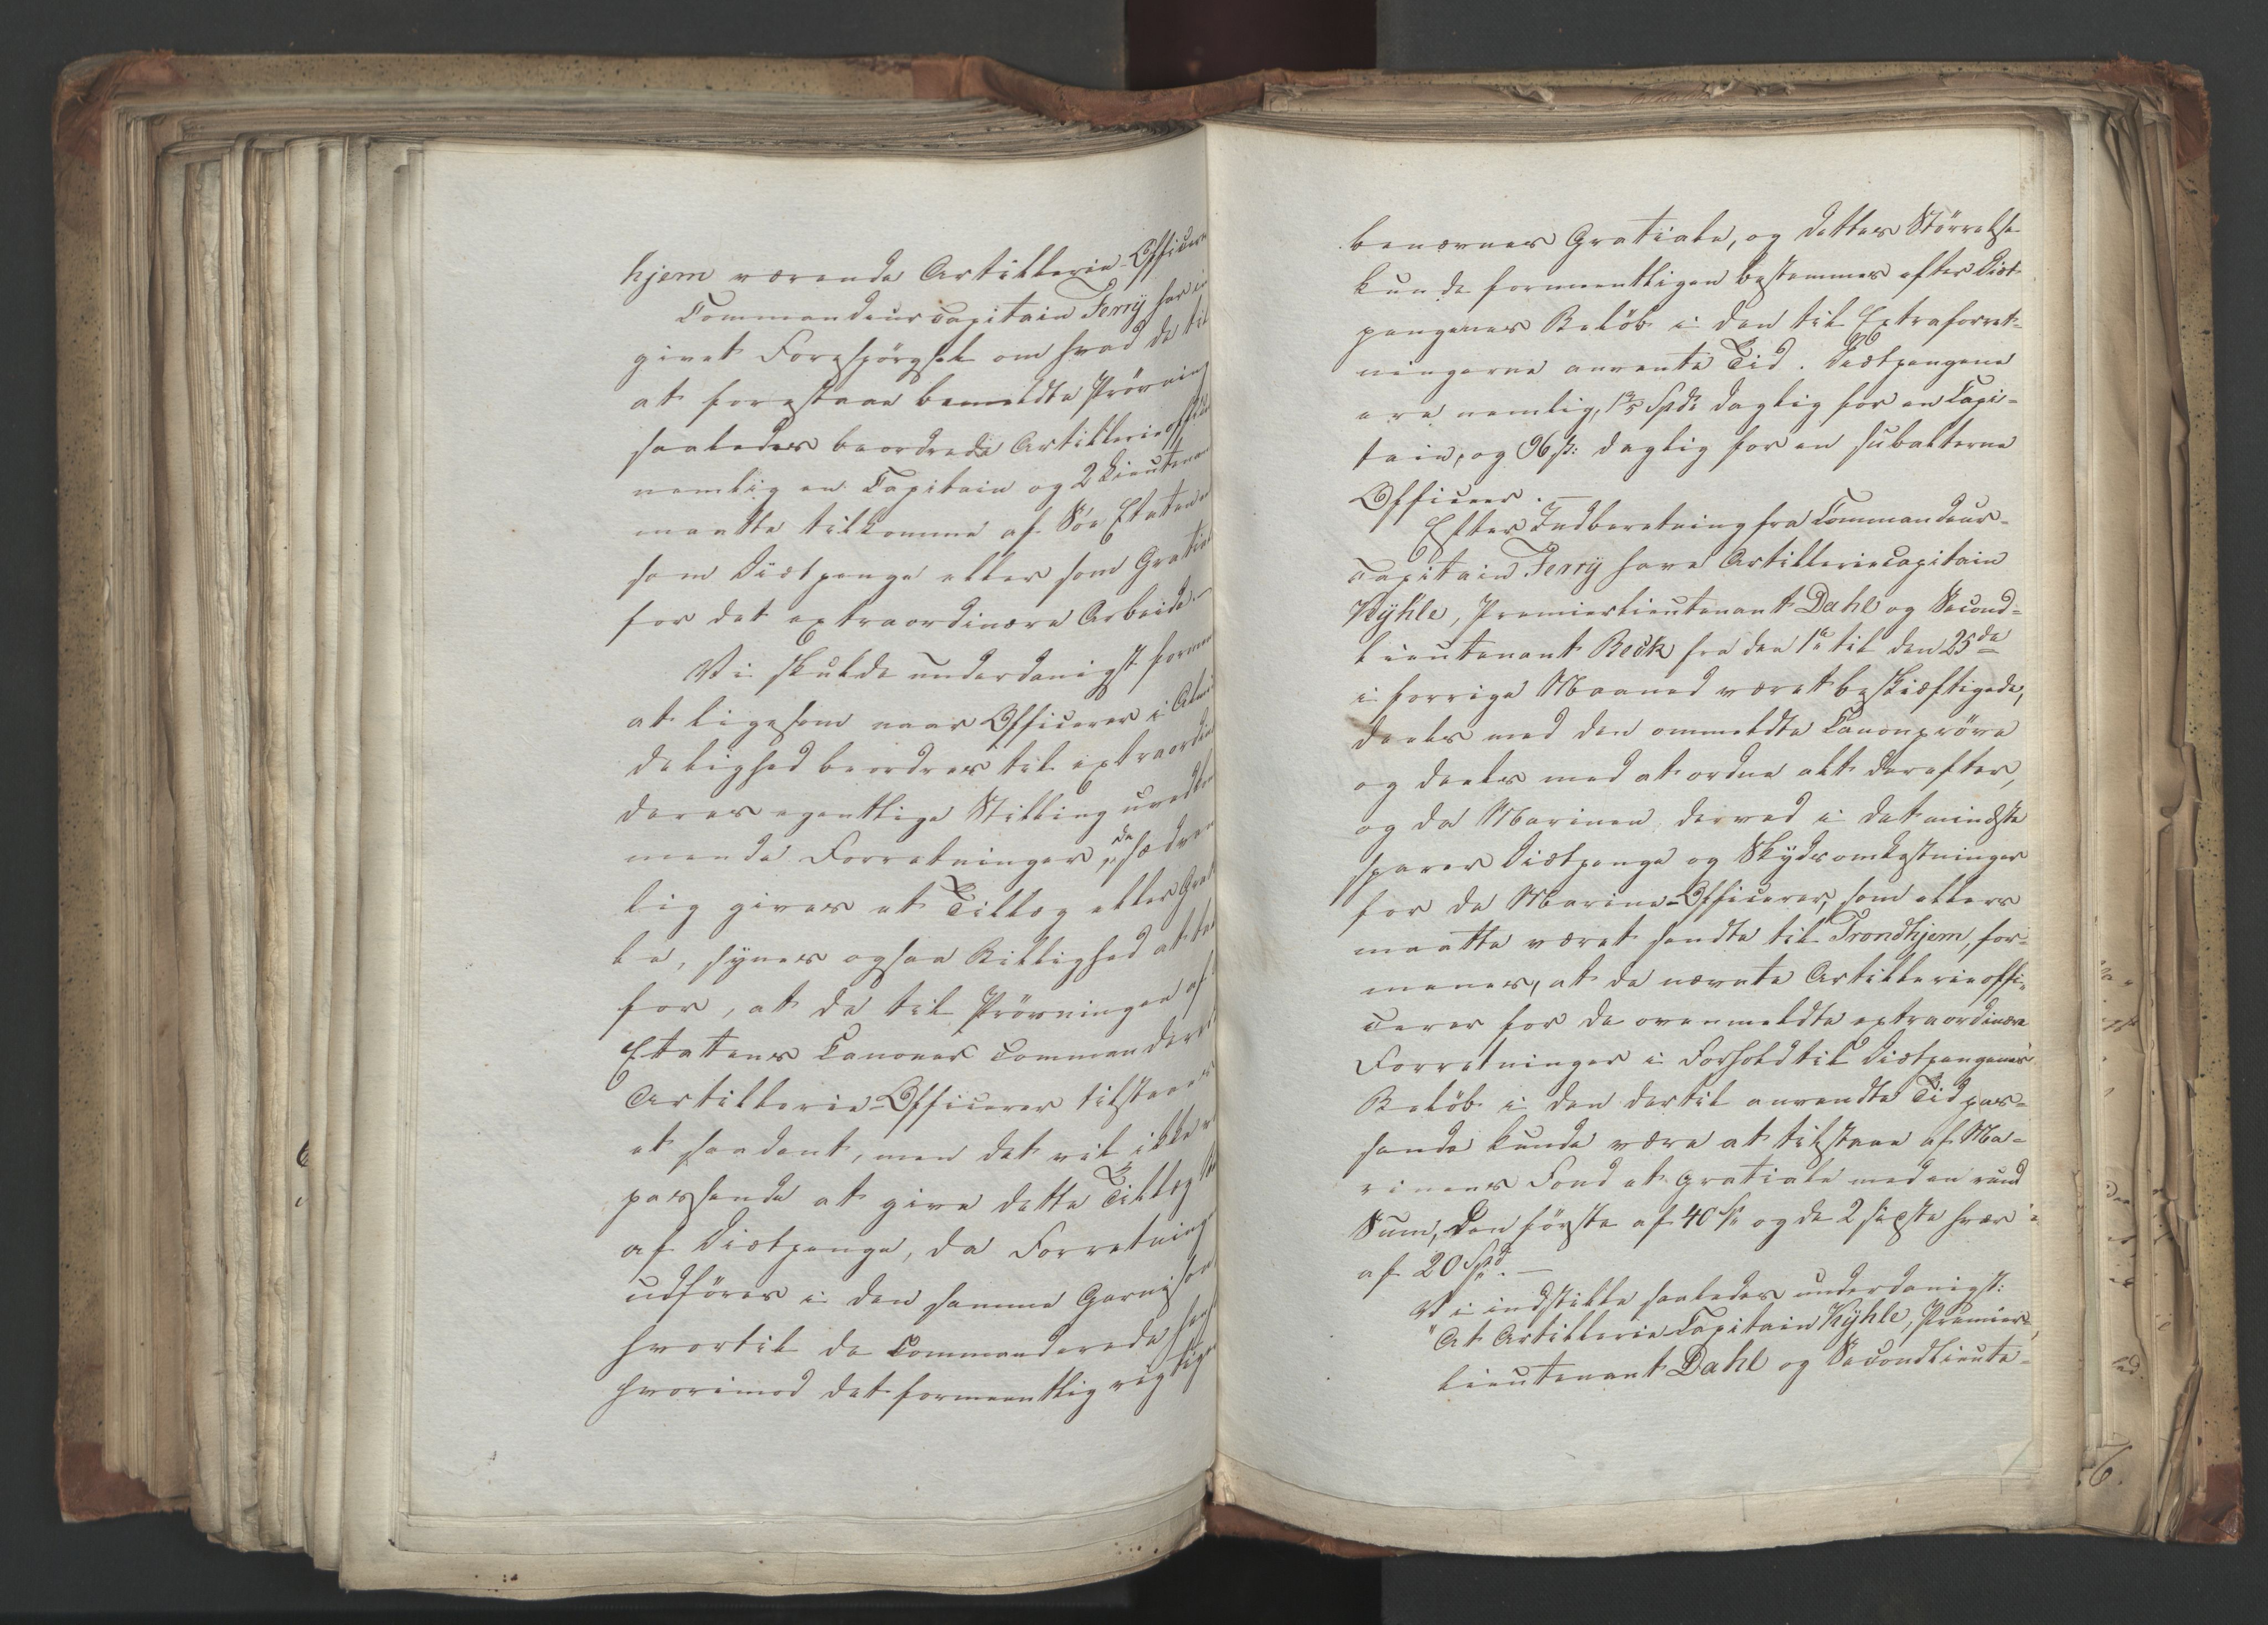 hjem værende Artillerie-Officerer
Commandeurcapitain Ferrÿ har i
givet Forespörgsel om hvad de til
at forestaae bemeldte Prövning
saaledes beordrede Artillerieoff
nemlig en Capitain og 2 Lieutenan
maatte tilkomme af Söe Etaten
som Diætpenge eller som Gratia
for det extraordinære Arbeide.–
Vi skulde underdanigst formee
at ligesom naar Officerer i Almi
delighed beordres til extraordin
deres egentlige Stilling uvedko
mende Forretninger, da sædvan
lig gives et Tillæg eller Grati
le, synes ogsaa Billighed at tal
for, at de til Prövningen af
Etatens Canoner commandere
Artillerie-Officerer tilstaaes
et saadant, men det vil ikke v
passende at give dette Tillæg
af Diætpenge, da Forretning
udföres i den samme Garnison
hvortil de Commanderede
hvorimod det formeentlig rigtig
benævnes Gratiale, og dettes Störrelse
kunde formeentligen bestemmes efter Diæt
pengenes Belöb i den til Extraforret-
ningerne anvente Tid. Diætpengene
ere nemlig, Spd. daglig for en Capi-
tain, og 96 s: daglig for en subalterne
Officeer.–
Efter Indberetning fra Commandeur-
Capitain Ferrÿ have Artilleriecapitain
Kÿhle, Premierlieutenant Dahl og Second-
lieutenant Beck fra den 1e til den 25de
i forrige Maaned været beskiæftigede,
deels med den ommeldte Canonpröve
og deels med at ordne alt derefter,
og da Marinen derved i det mindste
sparer Diætpenge og Skydsomkostninger
for de Marine-Officerer, som ellers
maatte været sendte til Trondhjem, for-
menes, at de nævnte Artillerieoffi-
cerer for de ovenmeldte extraordinære
Forretninger i Forhold til Diætpengenes
Belöb i den dertil anvendte Tid pas-
sende kunde være at tilstaae af Ma-
rinens Fond et Gratiale med en rund
Sum, den förste af 40 Sp og de 2 sidste hver
af 20 Spd.–
Vi indstille saaledes underdanigst:
"At Artillerie Capitain Kÿhle, Premier-
lieutenant Dahl og Secondlieute-